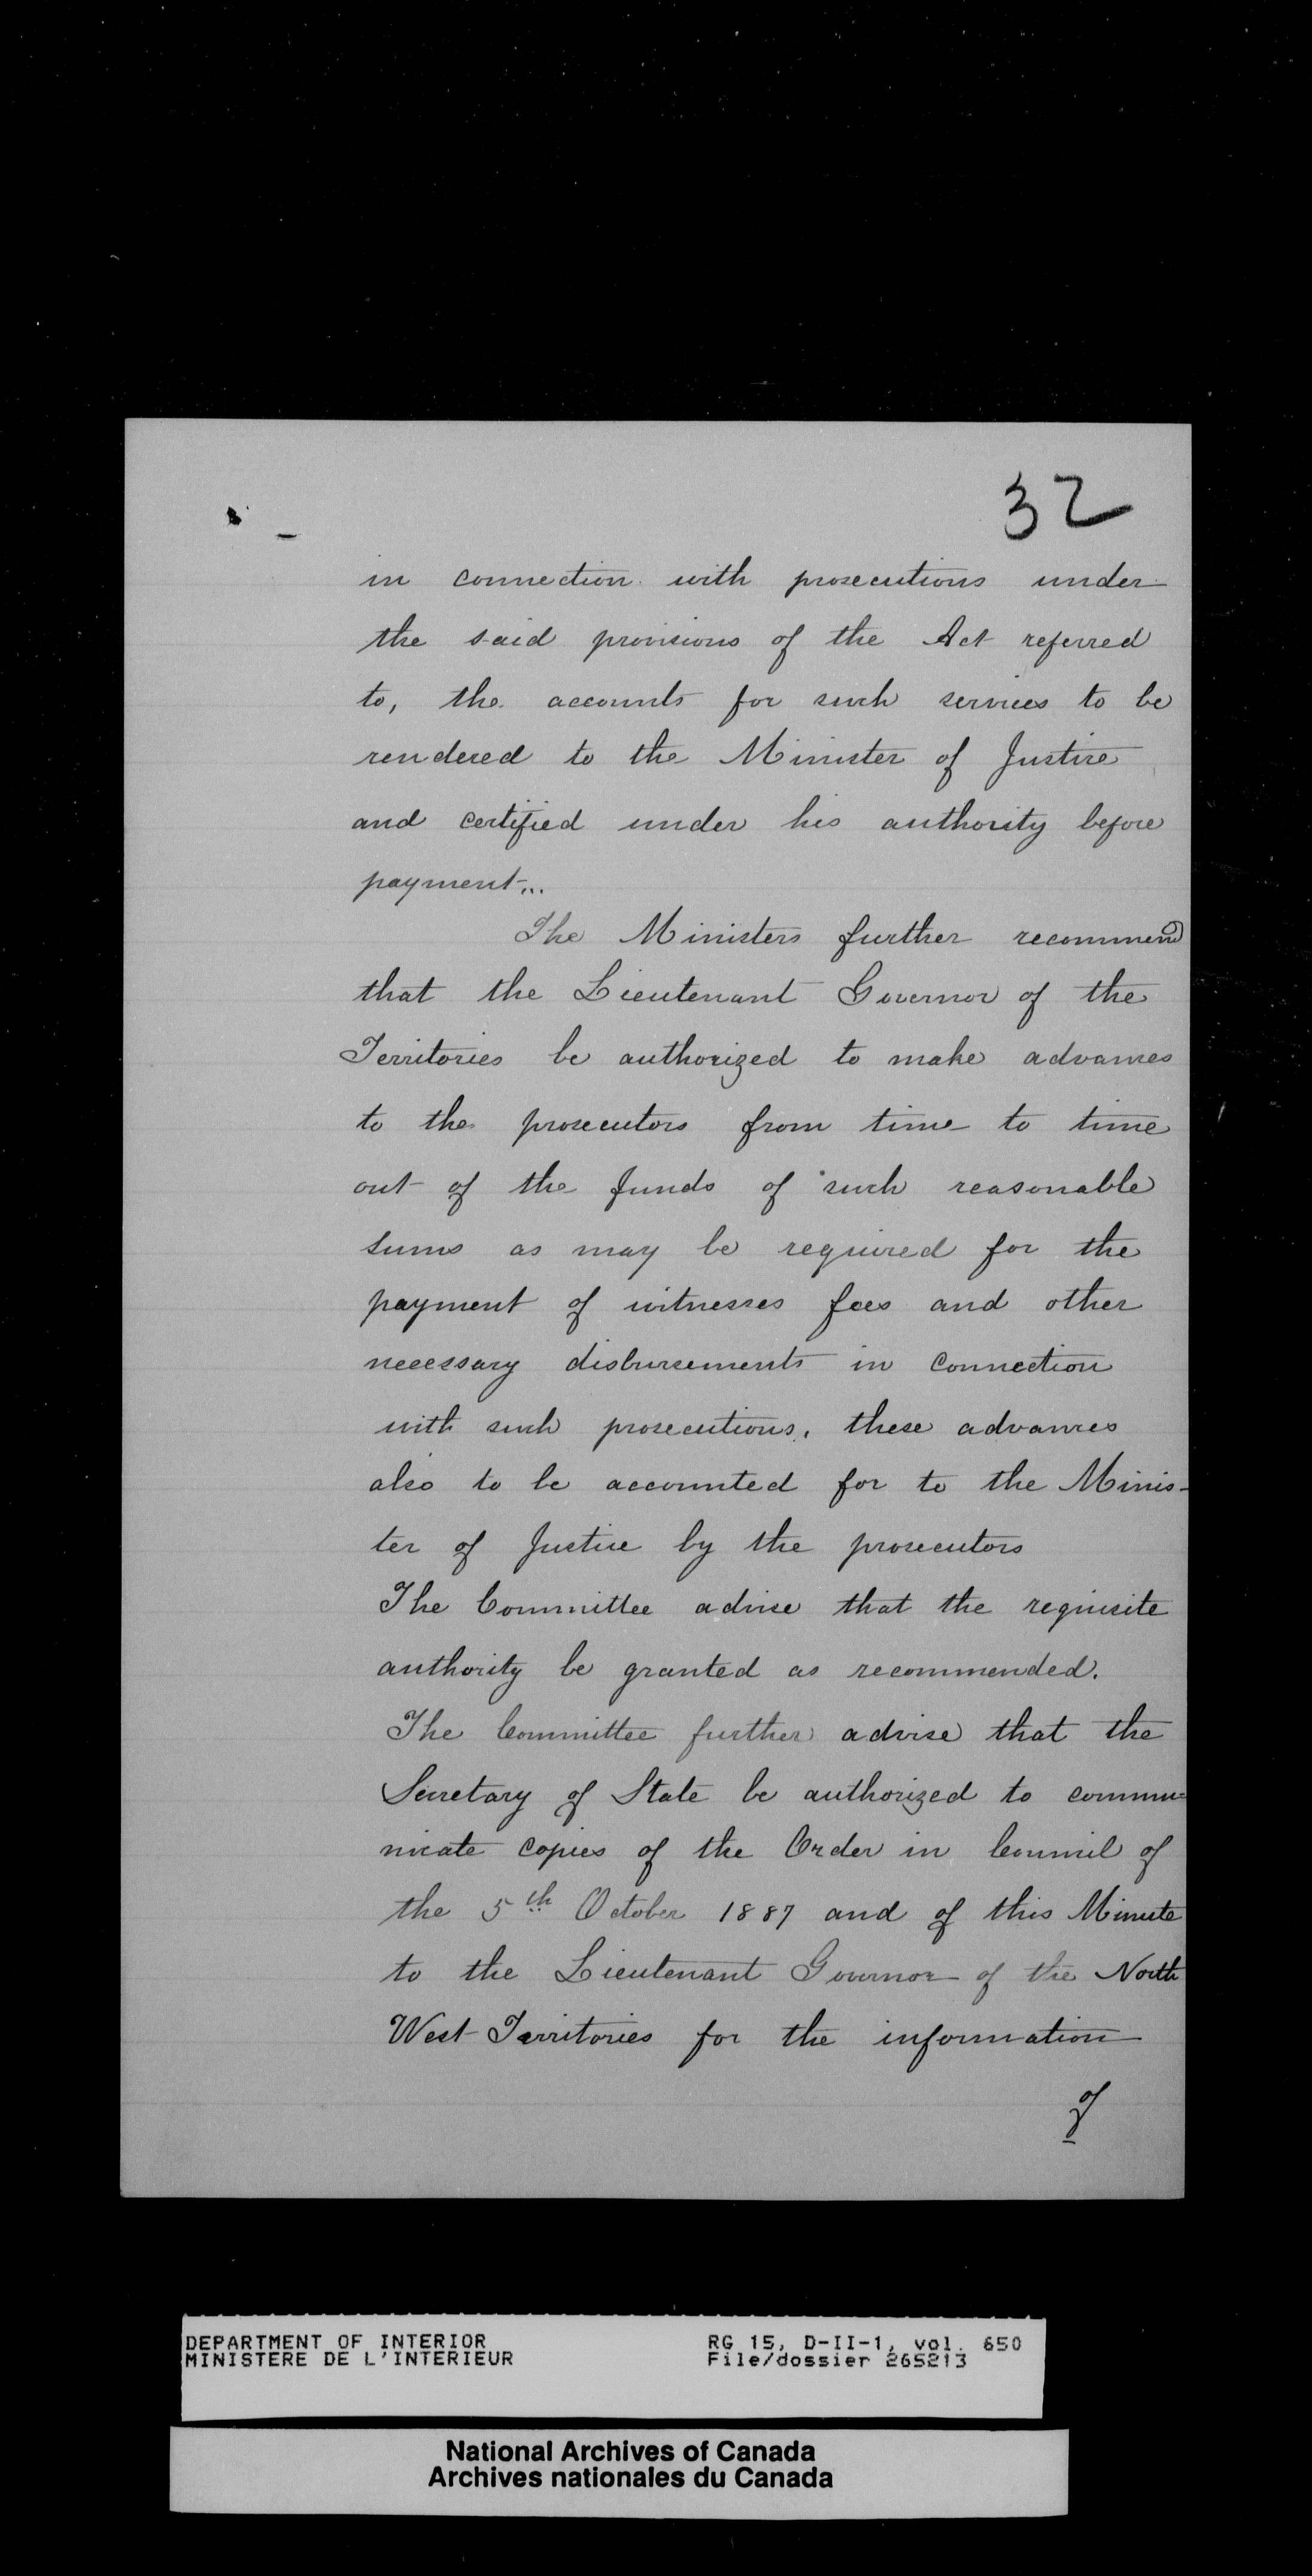 32
in connection with prosecutions under
the said provisions of the Act referred
to, the accounts for such services to be
rendered to the Minister of Justice
and certified under his authority before
payment...
The Ministers further recommend
that the Lieutenant Governor of the
Territories be authorized to make advances
to the prosecutors from time to time
out of the funds of such reasonable
sums as may be required for the
payment of witnesses fees and other
necessary disbursements in connection
with such prosecutions, these advances
also to be accounted for to the Minis-
ter of Justice by the prosecutors
The Committee advise that the requisite
authority be granted as recommended.
The Committee further advise that the
Secretary of State be authorized to commu=
nicate copies of the Order in Council of
the 5th October 1887 and of this Minute
to the Lieutenant Governor of the North
West Territories for the information
of
DEPARTMENT OF INTERIOR RG 15, D-II-1, vol. 650
MINISTERE DE L'INTERIEUR File/dossier 265213
National Archives of Canada
Archives nationales du Canada